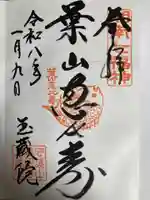 奉拝
葉山恵比寿
令和八年
一月九日
玉蔵院